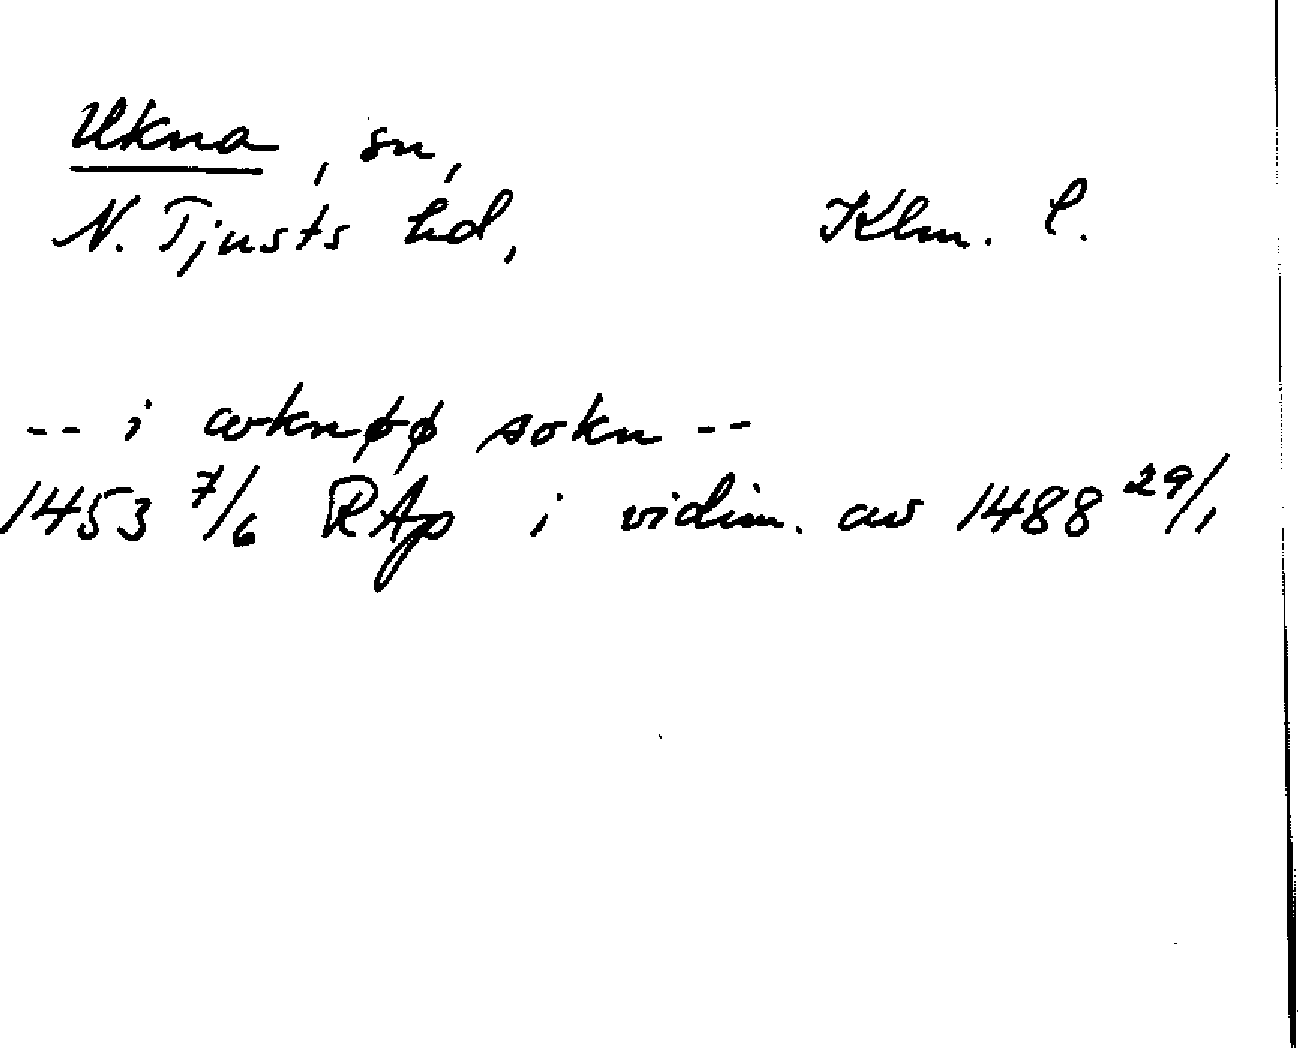 Ukna, sn,
N. Tjusts hd, Klm. l.
-- i wknøø sokn --
1453 7/6 RAp i vidim. av 1488 29/1